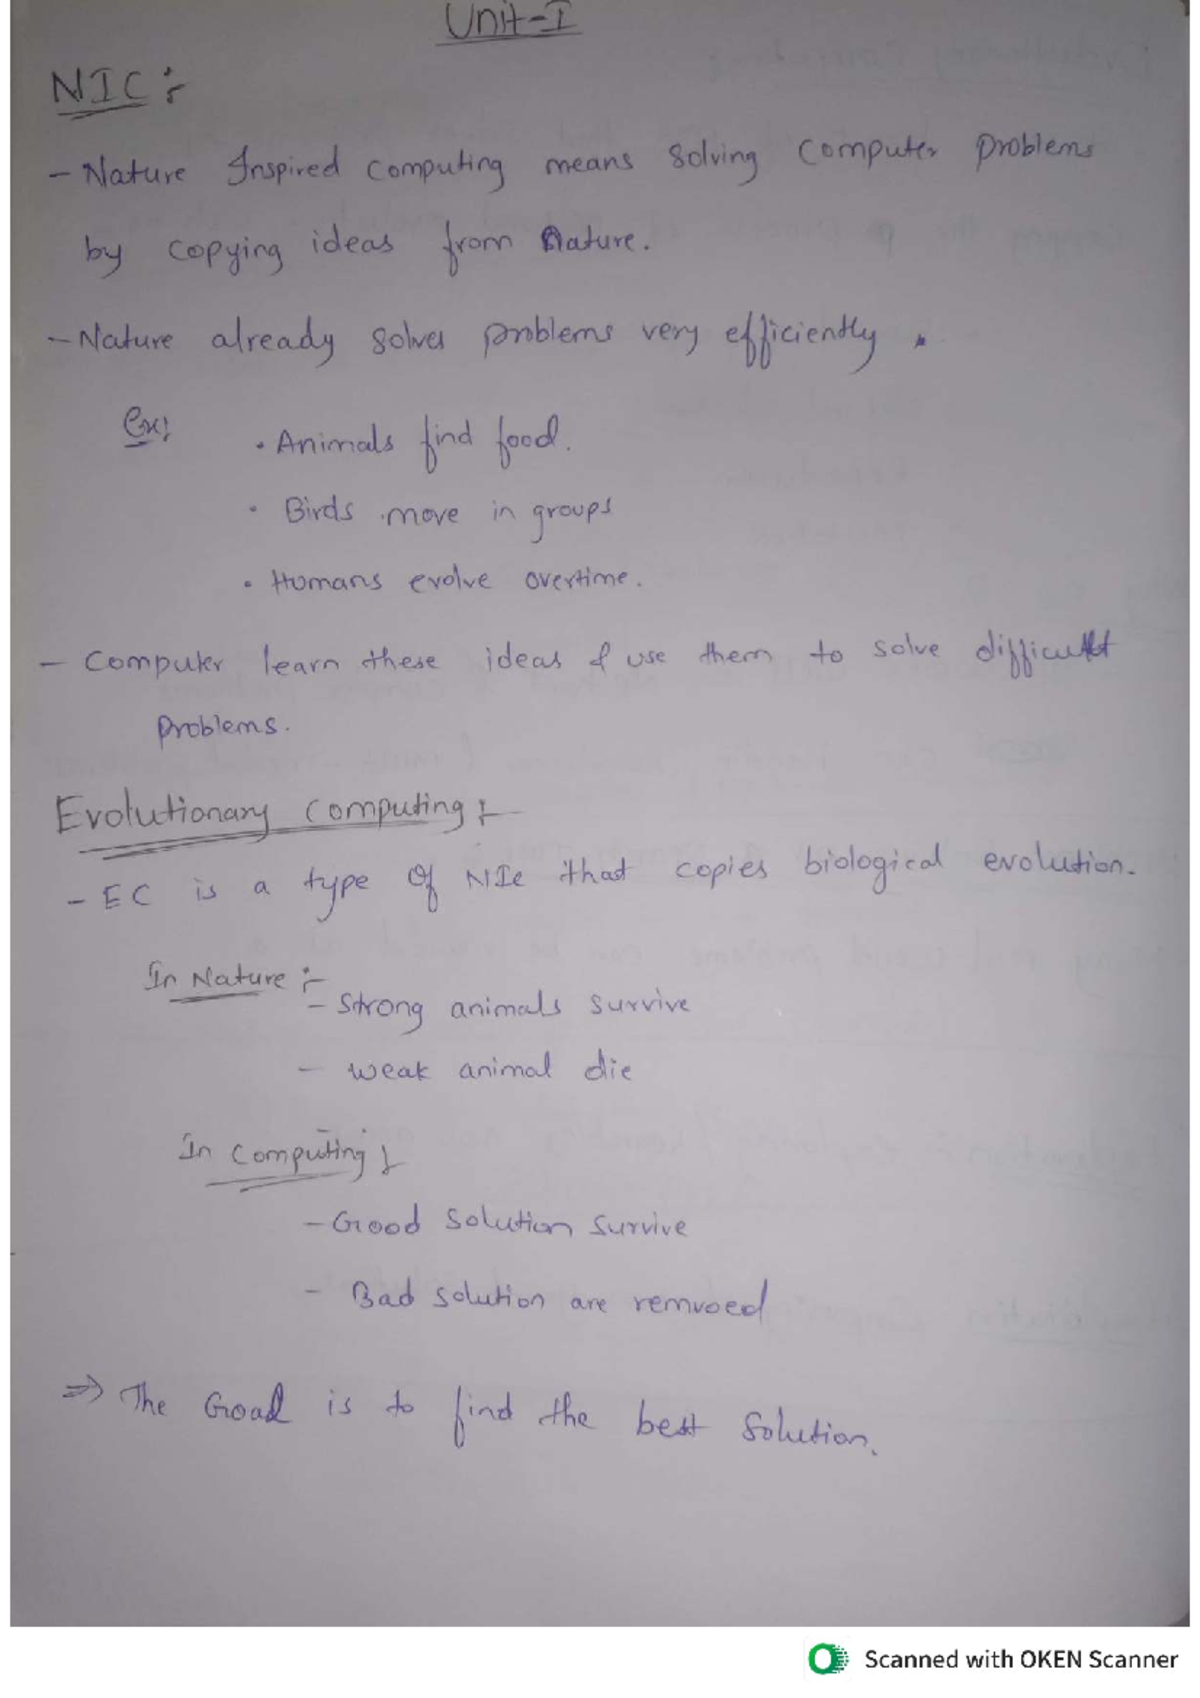 Unit-I
NIC :-
- Nature Inspired computing means solving computer problems
by copying ideas from nature.
- Nature already solves problems very efficiently.
Ex:
• Animals find food.
• Birds move in groups
• Humans evolve overtime.
- Computer learn these ideas & use them to solve difficult
problems.
Evolutionary Computing :-
- EC is a type of NIC that copies biological evolution.
In Nature :-
- Strong animals survive
- weak animal die
In Computing :-
- Good solution survive
- Bad solution are remvoed
⇒ The Goal is to find the best solution.
Scanned with OKEN Scanner